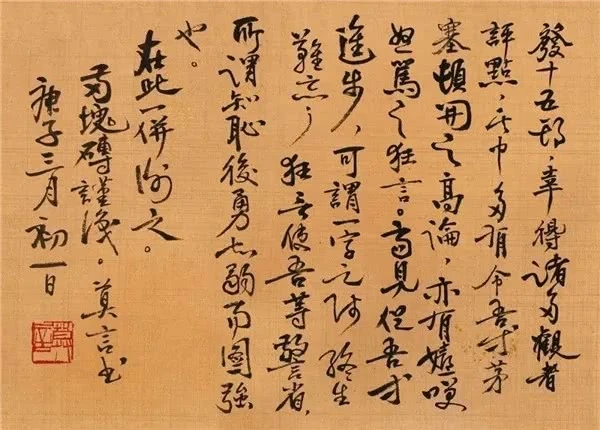 發十五期，幸得诸多觀者
評點，其中多有令吾等茅
塞頓開之高論，亦有嬉咲
怒罵之狂言。高見促吾等
進步，可謂一字之师終生
難忘，狂言使吾等警省，
所謂知恥後勇知弱而圖強
也。
在此一併謝之。
两塊磚謹識。莫言书
庚子三月初一日